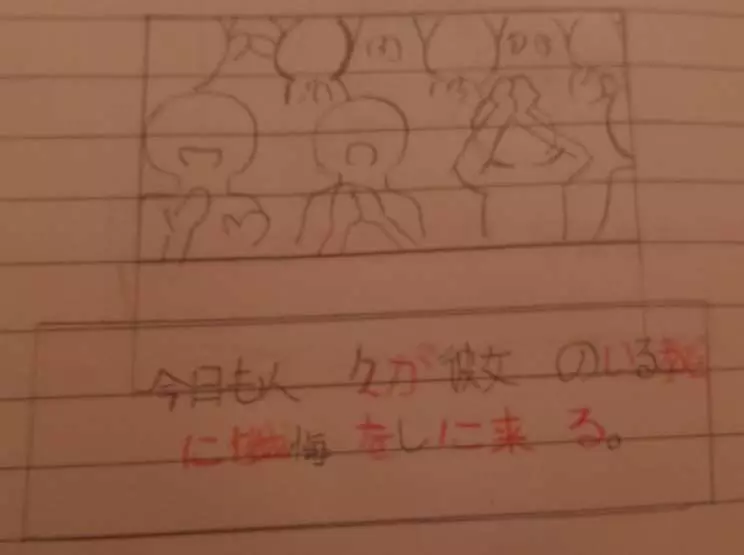 今日も人々が彼女のいる
に懺悔をしに来る。